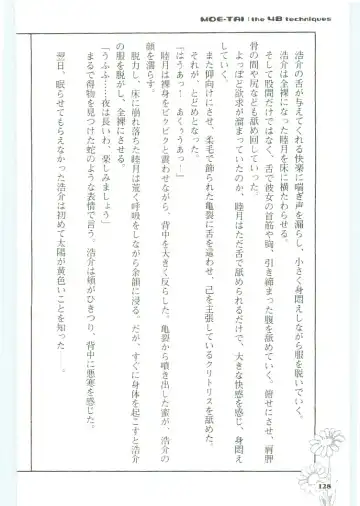 MOE-TAI : the 48 techniques
浩介の舌が与えてくれる快楽に喘ぎ声を漏らし、小さく身悶えしながら服を脱いでいく。
浩介は全裸になった睦月を床に横たわらせる。
そして股間だけではなく、舌で彼女の首筋や胸、引き締まった腹を舐めていく。俯せにさせ、肩胛
骨の間や尻なども舐め回していく。
よっぽど欲求が溜まっていたのか、睦月はただ舌で舐められるだけで、大きな快感を感じ、身悶え
また仰向けにさせ、柔毛で飾られた亀裂に舌を這わせ、己を主張しているクリトリスを舐めた。
それが、とどめとなった。
「はうあっー あくぅうあっー」
睦月は裸身をビクビクと震わせながら、背中を大きく反らした。亀裂から噴き出した蜜が、浩介の
顔を濡らす。
脱力し、床に崩れ落ちた睦月は荒く呼吸をしながら余韻に浸る。だが、すぐに身体を起こすと浩介
の服を脱がし、全裸にさせる。
「うふふ……夜は長いわ、楽しみましょう」
まるで得物を見つけた蛇のような表情で言う。浩介は頬がひきつり、背中に悪寒を感じた。
翌日、眠らせてもらえなかった浩介は初めて太陽が黄色いことを知った――。
128